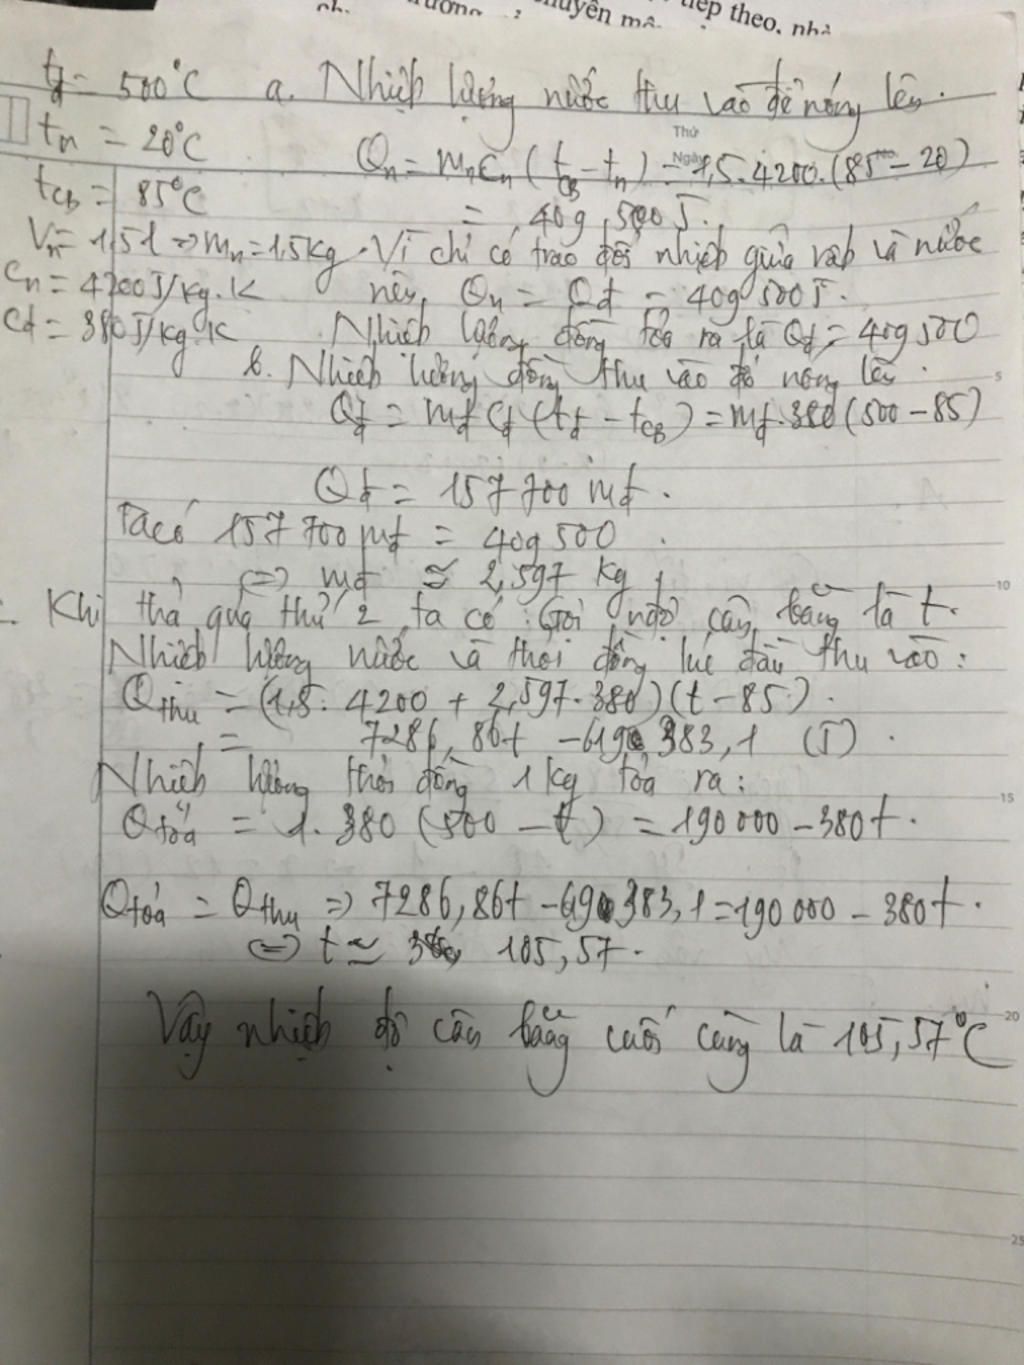 ương
chuyên mô
tiếp theo, nhà
tđ = 500°C a. Nhiệt lượng nước thu vào để nóng lên.
tn = 20°C
Thứ
Ngày
Qn = mnCn (tCB - tn) = 1,5.4200.(85 - 20)
tCB = 85°C
= 409 500 J.
Vn = 1,5 l => mn = 1,5 kg. Vì chỉ có trao đổi nhiệt giữa vật và nước
Cn = 4200 J/kg.K nên, Qn = Qđ = 409 500 J.
Cđ = 380 J/kg.K Nhiệt lượng đồng tỏa ra là Qđ = 409 500
b. Nhiệt lượng đồng thu vào để nóng lên.
5
Qđ = mđ Cđ (tđ - tCB) = mđ.380 (500 - 85)
Qđ = 157 700 mđ.
Ta có 157 700 mđ = 409 500.
<=> mđ ≈ 2,597 kg
10
Khi thả quả thứ 2, ta có: Gọi nđộ cân bằng là t.
Nhiệt lượng nước và thỏi đồng lúc đầu thu vào:
Qthu = (1,5. 4200 + 2,597.380)(t - 85).
= 7286,86t - 619 383,1 (J).
Nhiệt lượng thỏi đồng 1 kg tỏa ra:
15
Qtỏa = 1. 380 (500 - t) = 190 000 - 380t.
Qtỏa = Qthu => 7286,86t - 619 383,1 = 190 000 - 380t.
<=> t ≈ 105,57.
20
Vậy nhiệt độ cân bằng cuối cùng là 105,57°C
25